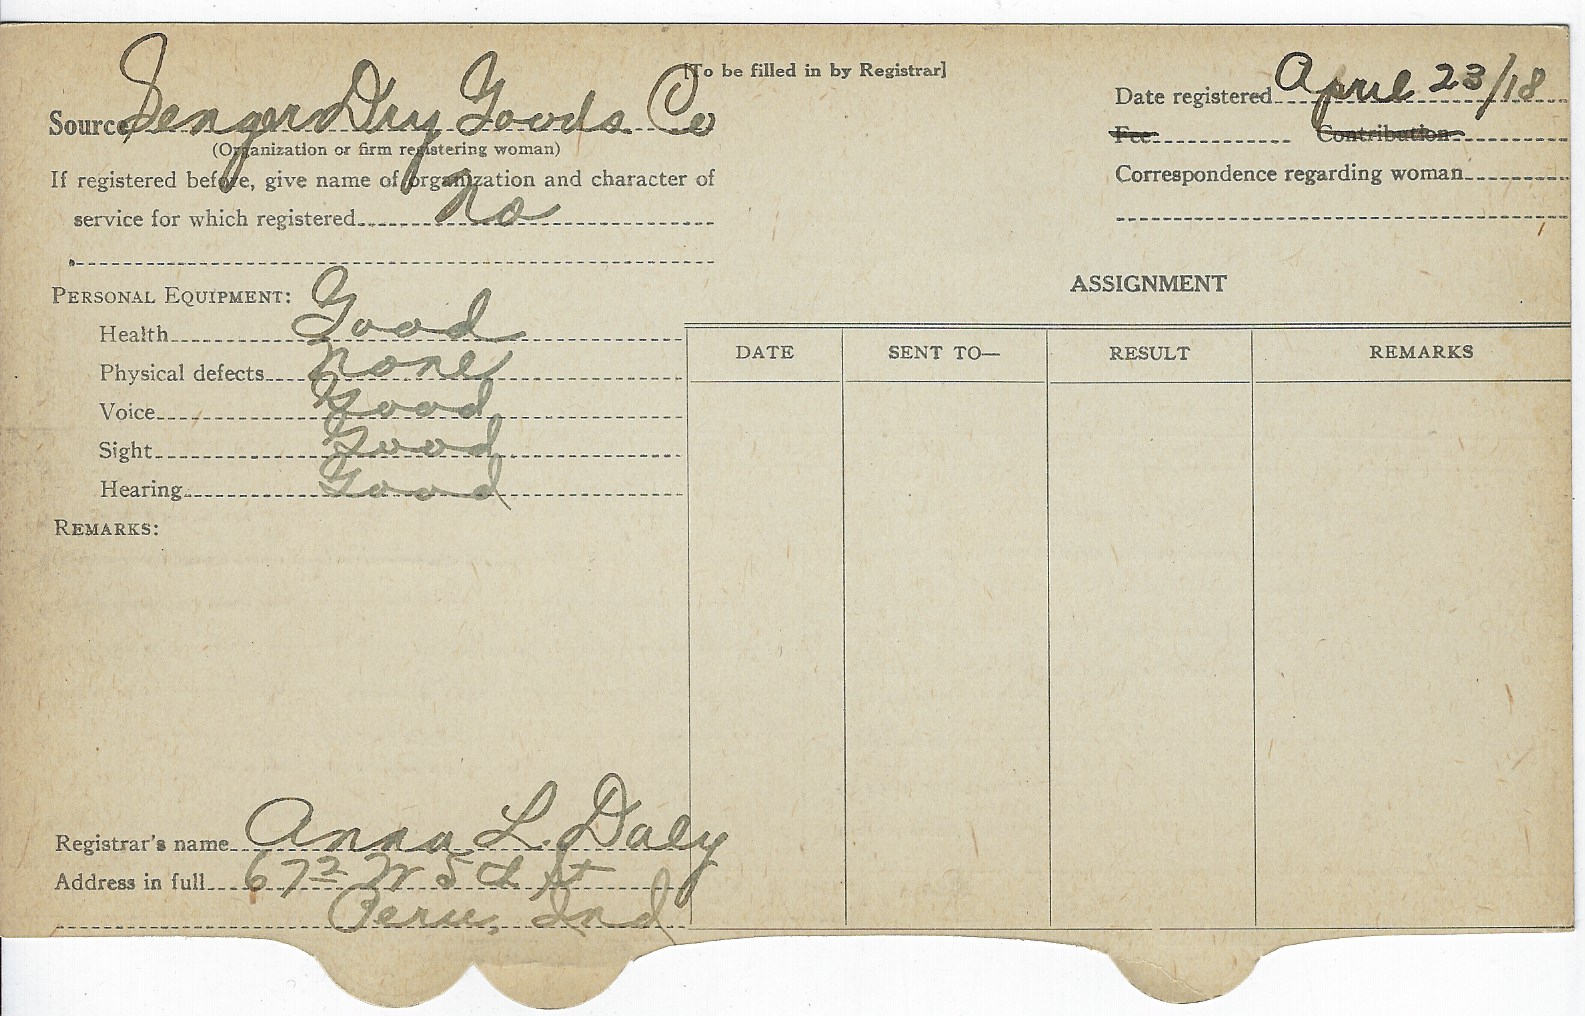 [To be filled in by Registrar]
Source Senger Dry Goods Co
(Organization or firm registering woman)
If registered before, give name of organization and character of
service for which registered No
Date registered April 23/18
Fee Contribution
Correspondence regarding woman
PERSONAL EQUIPMENT:
Health Good
Physical defects None
Voice Good
Sight Good
Hearing Good
REMARKS:
ASSIGNMENT
DATE SENT TO— RESULT REMARKS
Registrar's name Anna L. Daly
Address in full 672 W 5th St
Peru, Ind